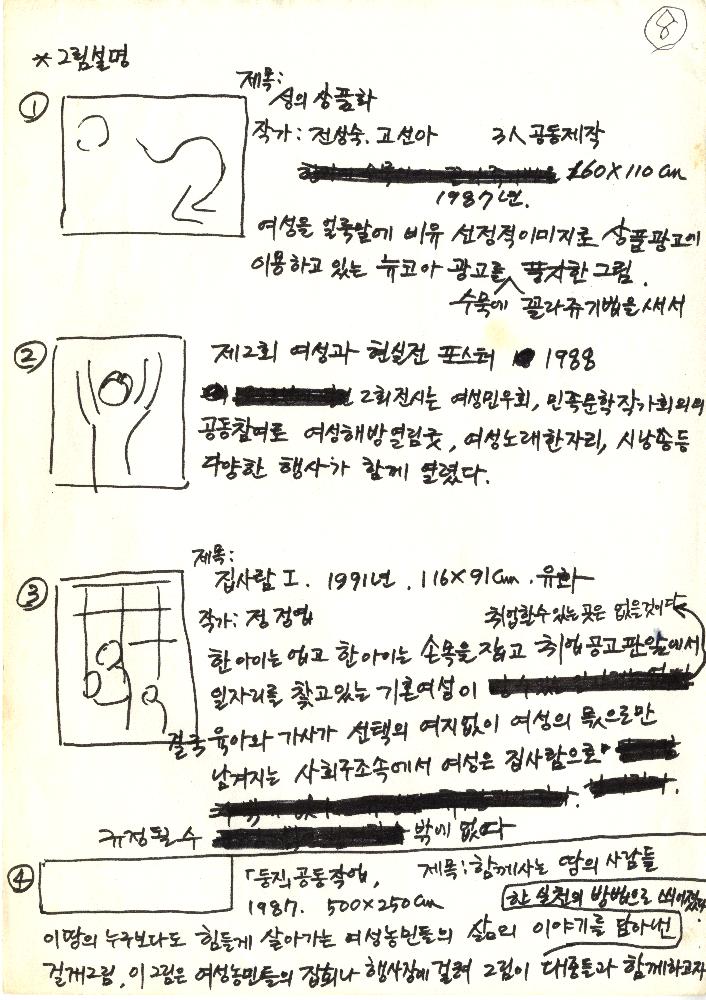 8
* 그림설명
① 제목:
성의 상품화
작가: 전상숙. 고선아 3人 공동제작
160X110cm
1987년.
여성을 얼룩말에 비유 선정적이미지로 상품광고에
이용하고 있는 뉴코아 광고를 풍자한 그림.
수묵에 꼴라쥬기법을 써서
② 제2회 여성과 현실전 포스터 1988
2회전시는 여성민우회, 민족문학작가회의의
공동참여로 여성해방열림굿, 여성노래한자리, 시낭송등
다양한 행사가 함께 열렸다.
③ 제목:
집사람 I. 1991년. 116X91cm. 유화
작가: 정정엽
취업할수있는곳은 없을것이다
한아이는 업고 한아이는 손목을 잡고 취업공고판앞에서
일자리를 찾고있는 기혼여성이
결국 육아와 가사가 선택의 여지없이 여성의 몫으로만
남겨지는 사회구조속에서 여성은 집사람으로
규정될 수 밖에 없다
④ 「둥지」공동작업, 제목: 함께사는 땅의 사람들
1987. 500X250cm
한 실천의 방법으로
이땅의 누구보다도 힘들게 살아가는 여성농민들의 삶의 이야기를 담아낸
걸개그림, 이그림은 여성농민들의 집회나 행사장에 걸려 그림이 대중들과 함께하고자